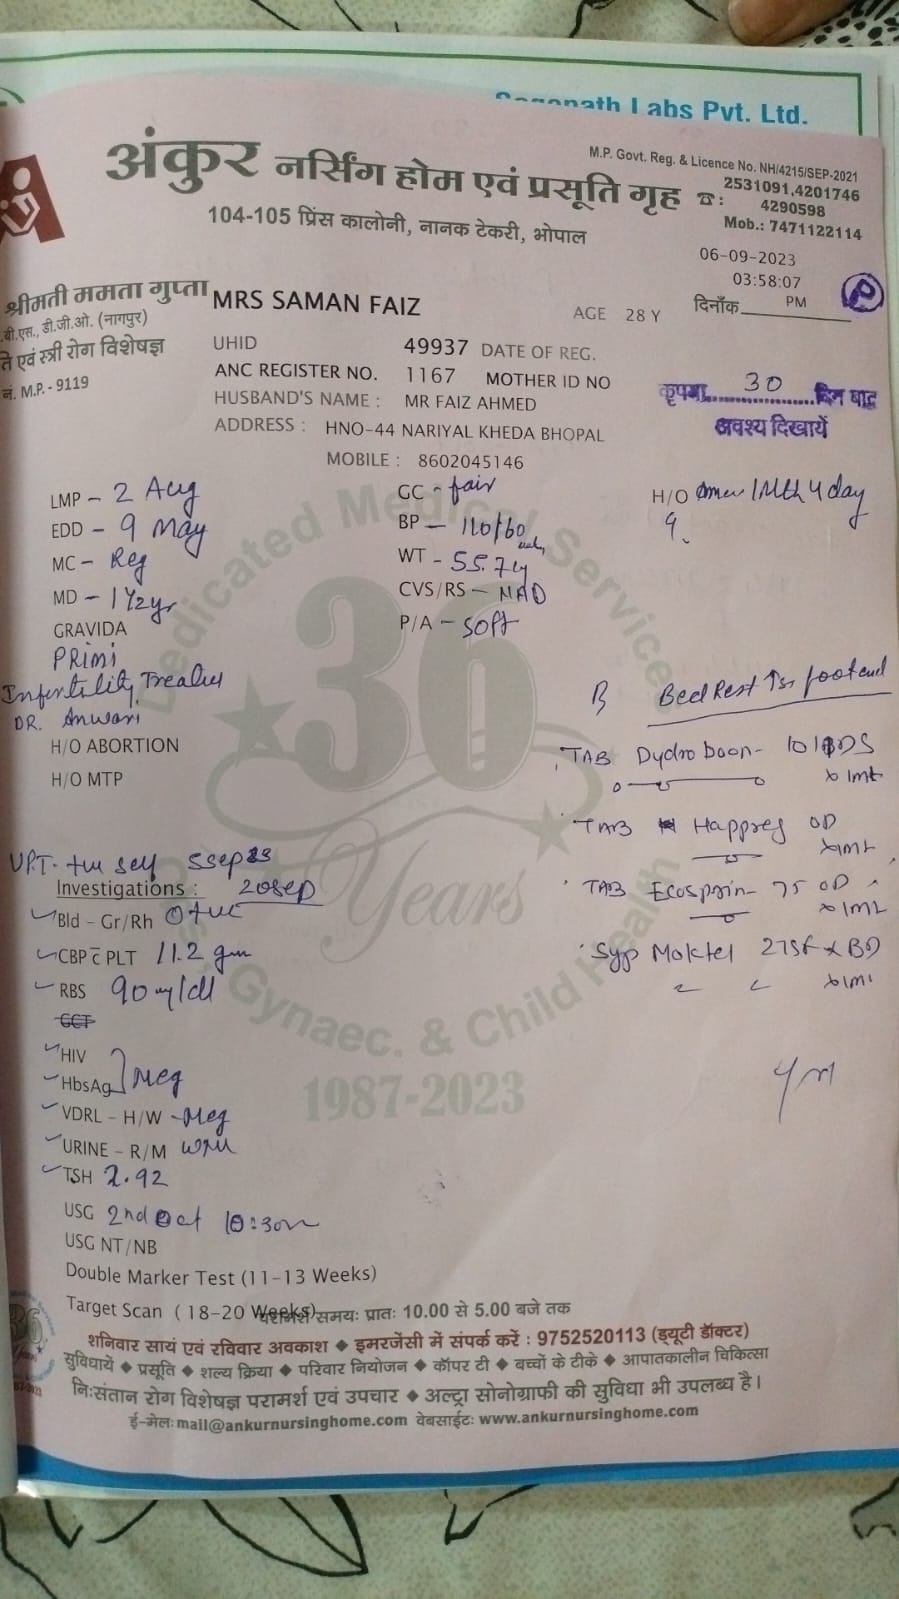 Labs Pvt. Ltd.
M.P. Govt. Reg. & Licence No. NH/4215/SEP-2021
अंकुर नर्सिंग होम एवं प्रसूति गृह ☎: 2531091,4201746
4290598
104-105 प्रिंस कालोनी, नानक टेकरी, भोपाल
Mob.: 7471122114
06-09-2023
03:58:07
श्रीमती ममता गुप्ता
MRS SAMAN FAIZ
AGE 28 Y
दिनाँक PM
P
बी.एस., डी.जी.ओ. (नागपुर)
ति एवं स्त्री रोग विशेषज्ञ
नं. M.P. - 9119
UHID 49937 DATE OF REG.
ANC REGISTER NO. 1167 MOTHER ID NO
HUSBAND'S NAME : MR FAIZ AHMED
ADDRESS : HNO-44 NARIYAL KHEDA BHOPAL
MOBILE : 8602045146
कृपया 30 दिन बाद
अवश्य दिखायें
LMP - 2 Aug
EDD - 9 May
MC - Reg
MD - 1 1/2 yr
GRAVIDA
PRimi
Infertility
DR. Anwari
H/O ABORTION
H/O MTP
GC - fair
BP - 110/60
WT - 55.7 kg
CVS/RS - NAD
P/A - Soft
H/O 1 Mth 4 day
Bed Rest foot end
TAB Dydroboon- 10
x 1mt
TAB Happreg OD
x 1mt
TAB Ecosprin- 75 OD
x 1mt
Syp Moktel 2TSF x BD
x 1mt
UPT- +ve self 5 Sep 23
Investigations : 20 Sep
Bld - Gr/Rh O +ve
CBP c̄ PLT 11.2 gm
RBS 90 mg/dl
GCT
HIV
HbsAg Neg
VDRL - H/W - Neg
URINE - R/M WNL
TSH 2.92
USG 2nd Oct 10:30
USG NT/NB
Double Marker Test (11-13 Weeks)
Target Scan ( 18-20 Weeks)
परामर्श समय: प्रातः 10.00 से 5.00 बजे तक
शनिवार सायं एवं रविवार अवकाश ◆ इमरजेंसी में संपर्क करें : 9752520113 (ड्यूटी डॉक्टर)
सुविधायें ◆ प्रसूति ◆ शल्य क्रिया ◆ परिवार नियोजन ◆ कॉपर टी ◆ बच्चों के टीके ◆ आपातकालीन चिकित्सा
निःसंतान रोग विशेषज्ञ परामर्श एवं उपचार ◆ अल्ट्रा सोनोग्राफी की सुविधा भी उपलब्ध है।
ई-मेल: mail@ankurnursinghome.com वेबसाईट: www.ankurnursinghome.com
Dedicated Medical Services
36
Years
Gynaec. & Child Health
1987-2023